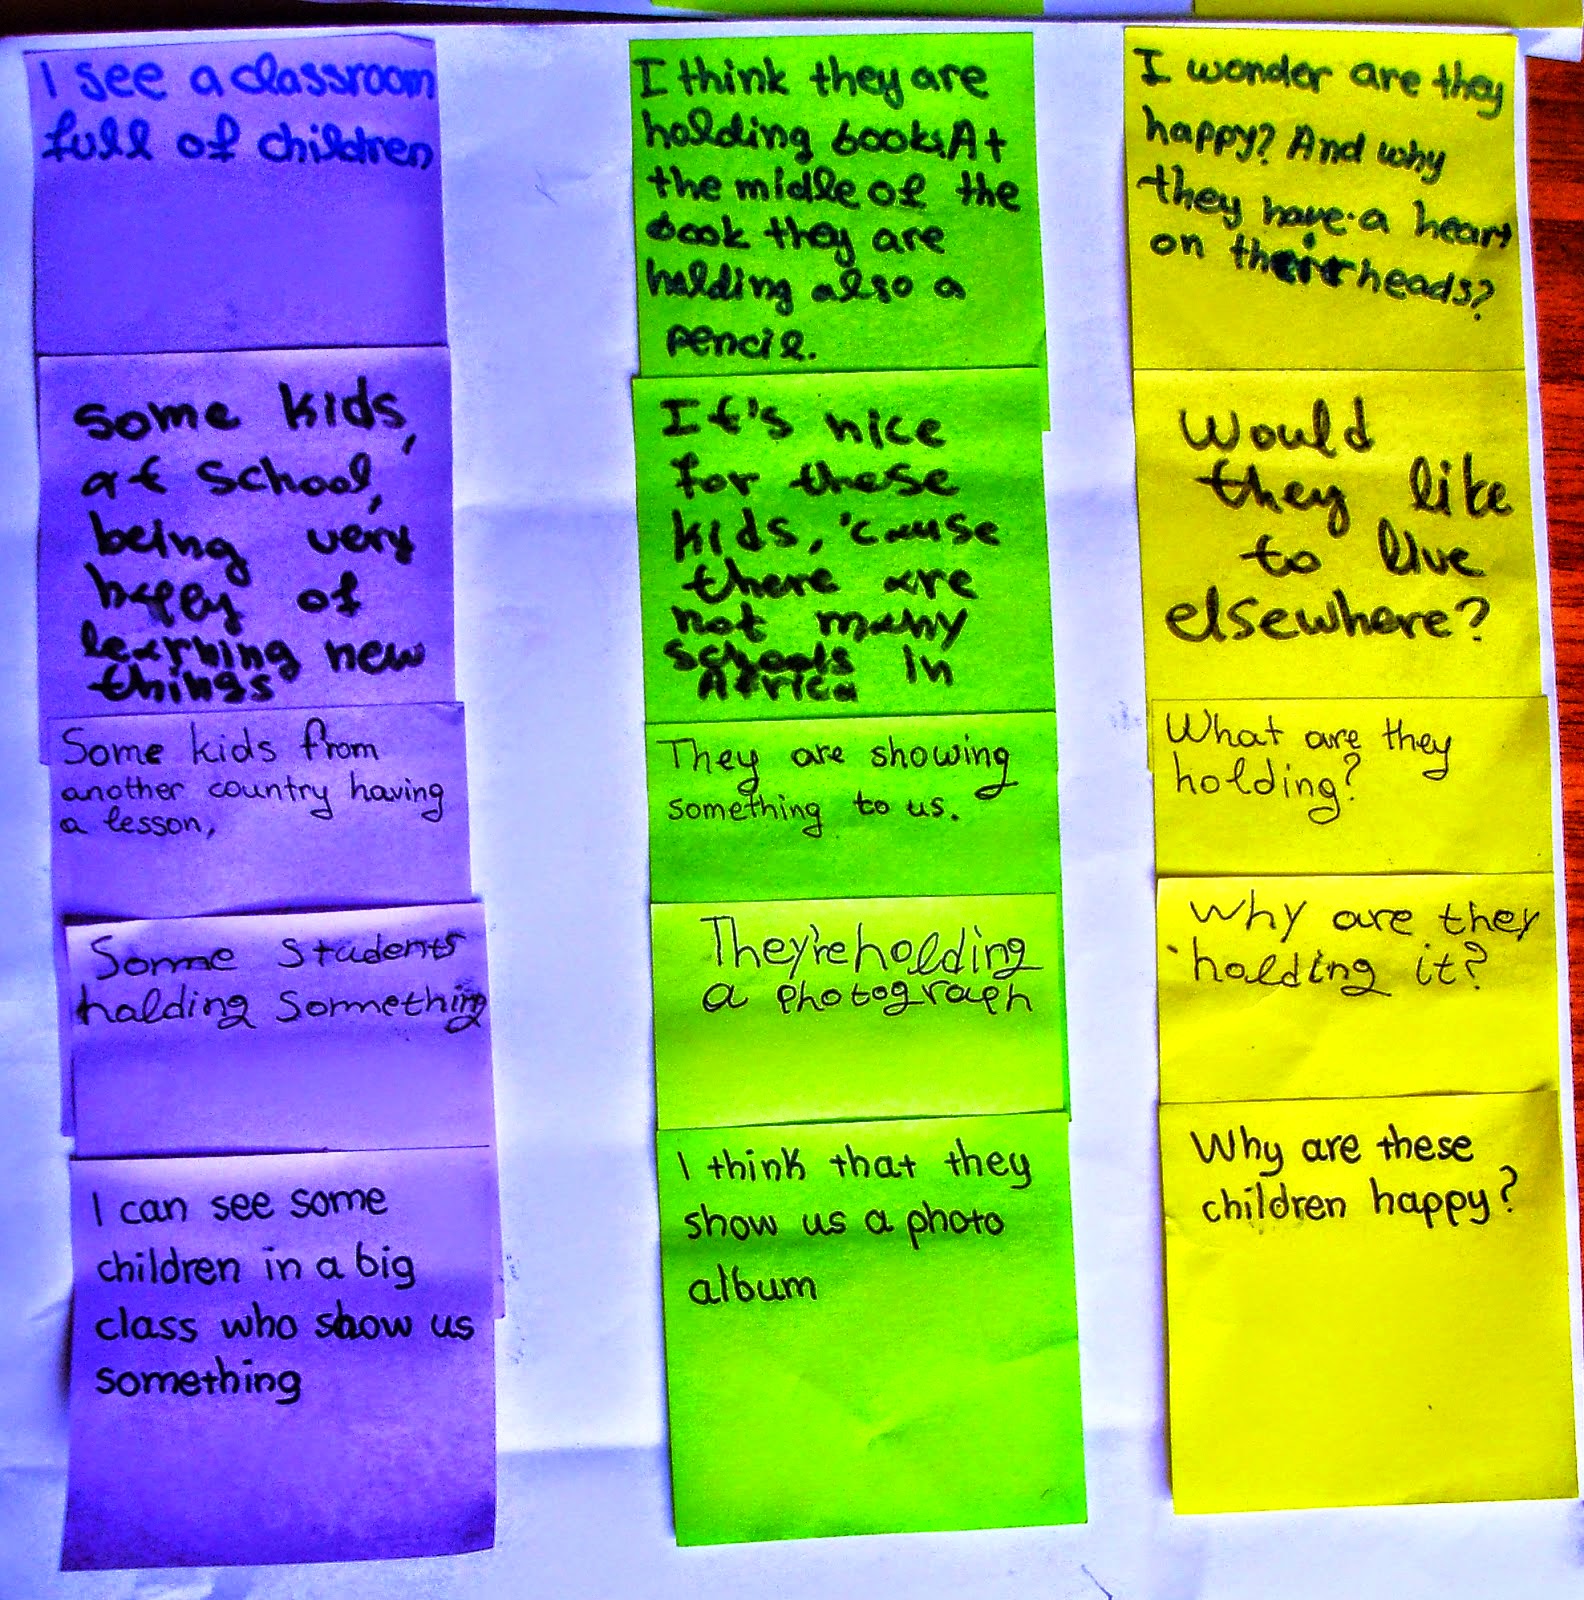 I see a classroom
full of children
some kids,
at school,
being very
happy of
learning new
things
Some kids from
another country having
a lesson,
Some students
holding something
I can see some
children in a big
class who show us
something
I think they are
holding books. At
the midle of the
book they are
holding also a
pencil.
It's nice
for these
kids, 'cause
there are
not many
schools in
Africa
They are showing
something to us.
They're holding
a photograph
I think that they
show us a photo
album
I wonder are they
happy? And why
they have a heart
on their heads?
Would
they like
to live
elsewhere?
What are they
holding?
Why are they
holding it?
Why are these
children happy?